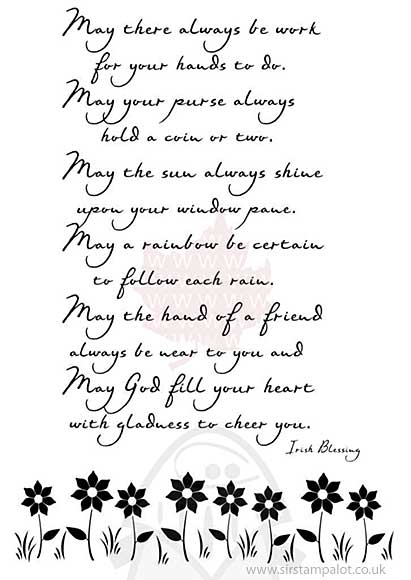 May there always be work
for your hands to do.
May your purse always
hold a coin or two.
May the sun always shine
upon your window pane.
May a rainbow be certain
to follow each rain.
May the hand of a friend
always be near to you and
May God fill your heart
with gladness to cheer you.
Irish Blessing
www.sirstampalot.co.uk